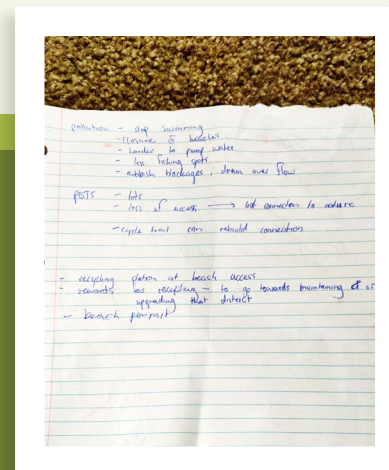 pollution - stop swimming
- closure of beaches
- harder to pump water
- less fishing spots
- rubbish blockages, drain over flow
PESTS - lots
- loss of access → lost connection to nature
- cycle trail can rebuild connection
- recycling station at beach access
- rewards for recycling - to go towards maintaining &
upgrading that district
- beach permit